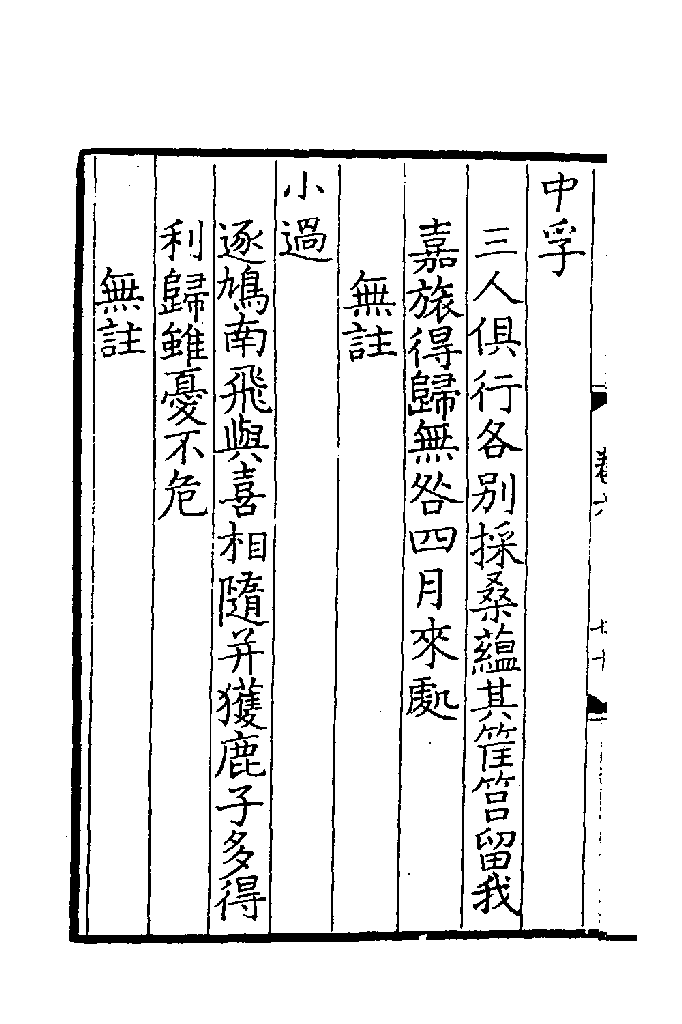 中孚
三人俱行各別採桑蘊其筐筥留我
嘉旅得歸無咎四月來處
無註
小過
逐鳩南飛與喜相隨并獲鹿子多得
利歸雖憂不危
無註